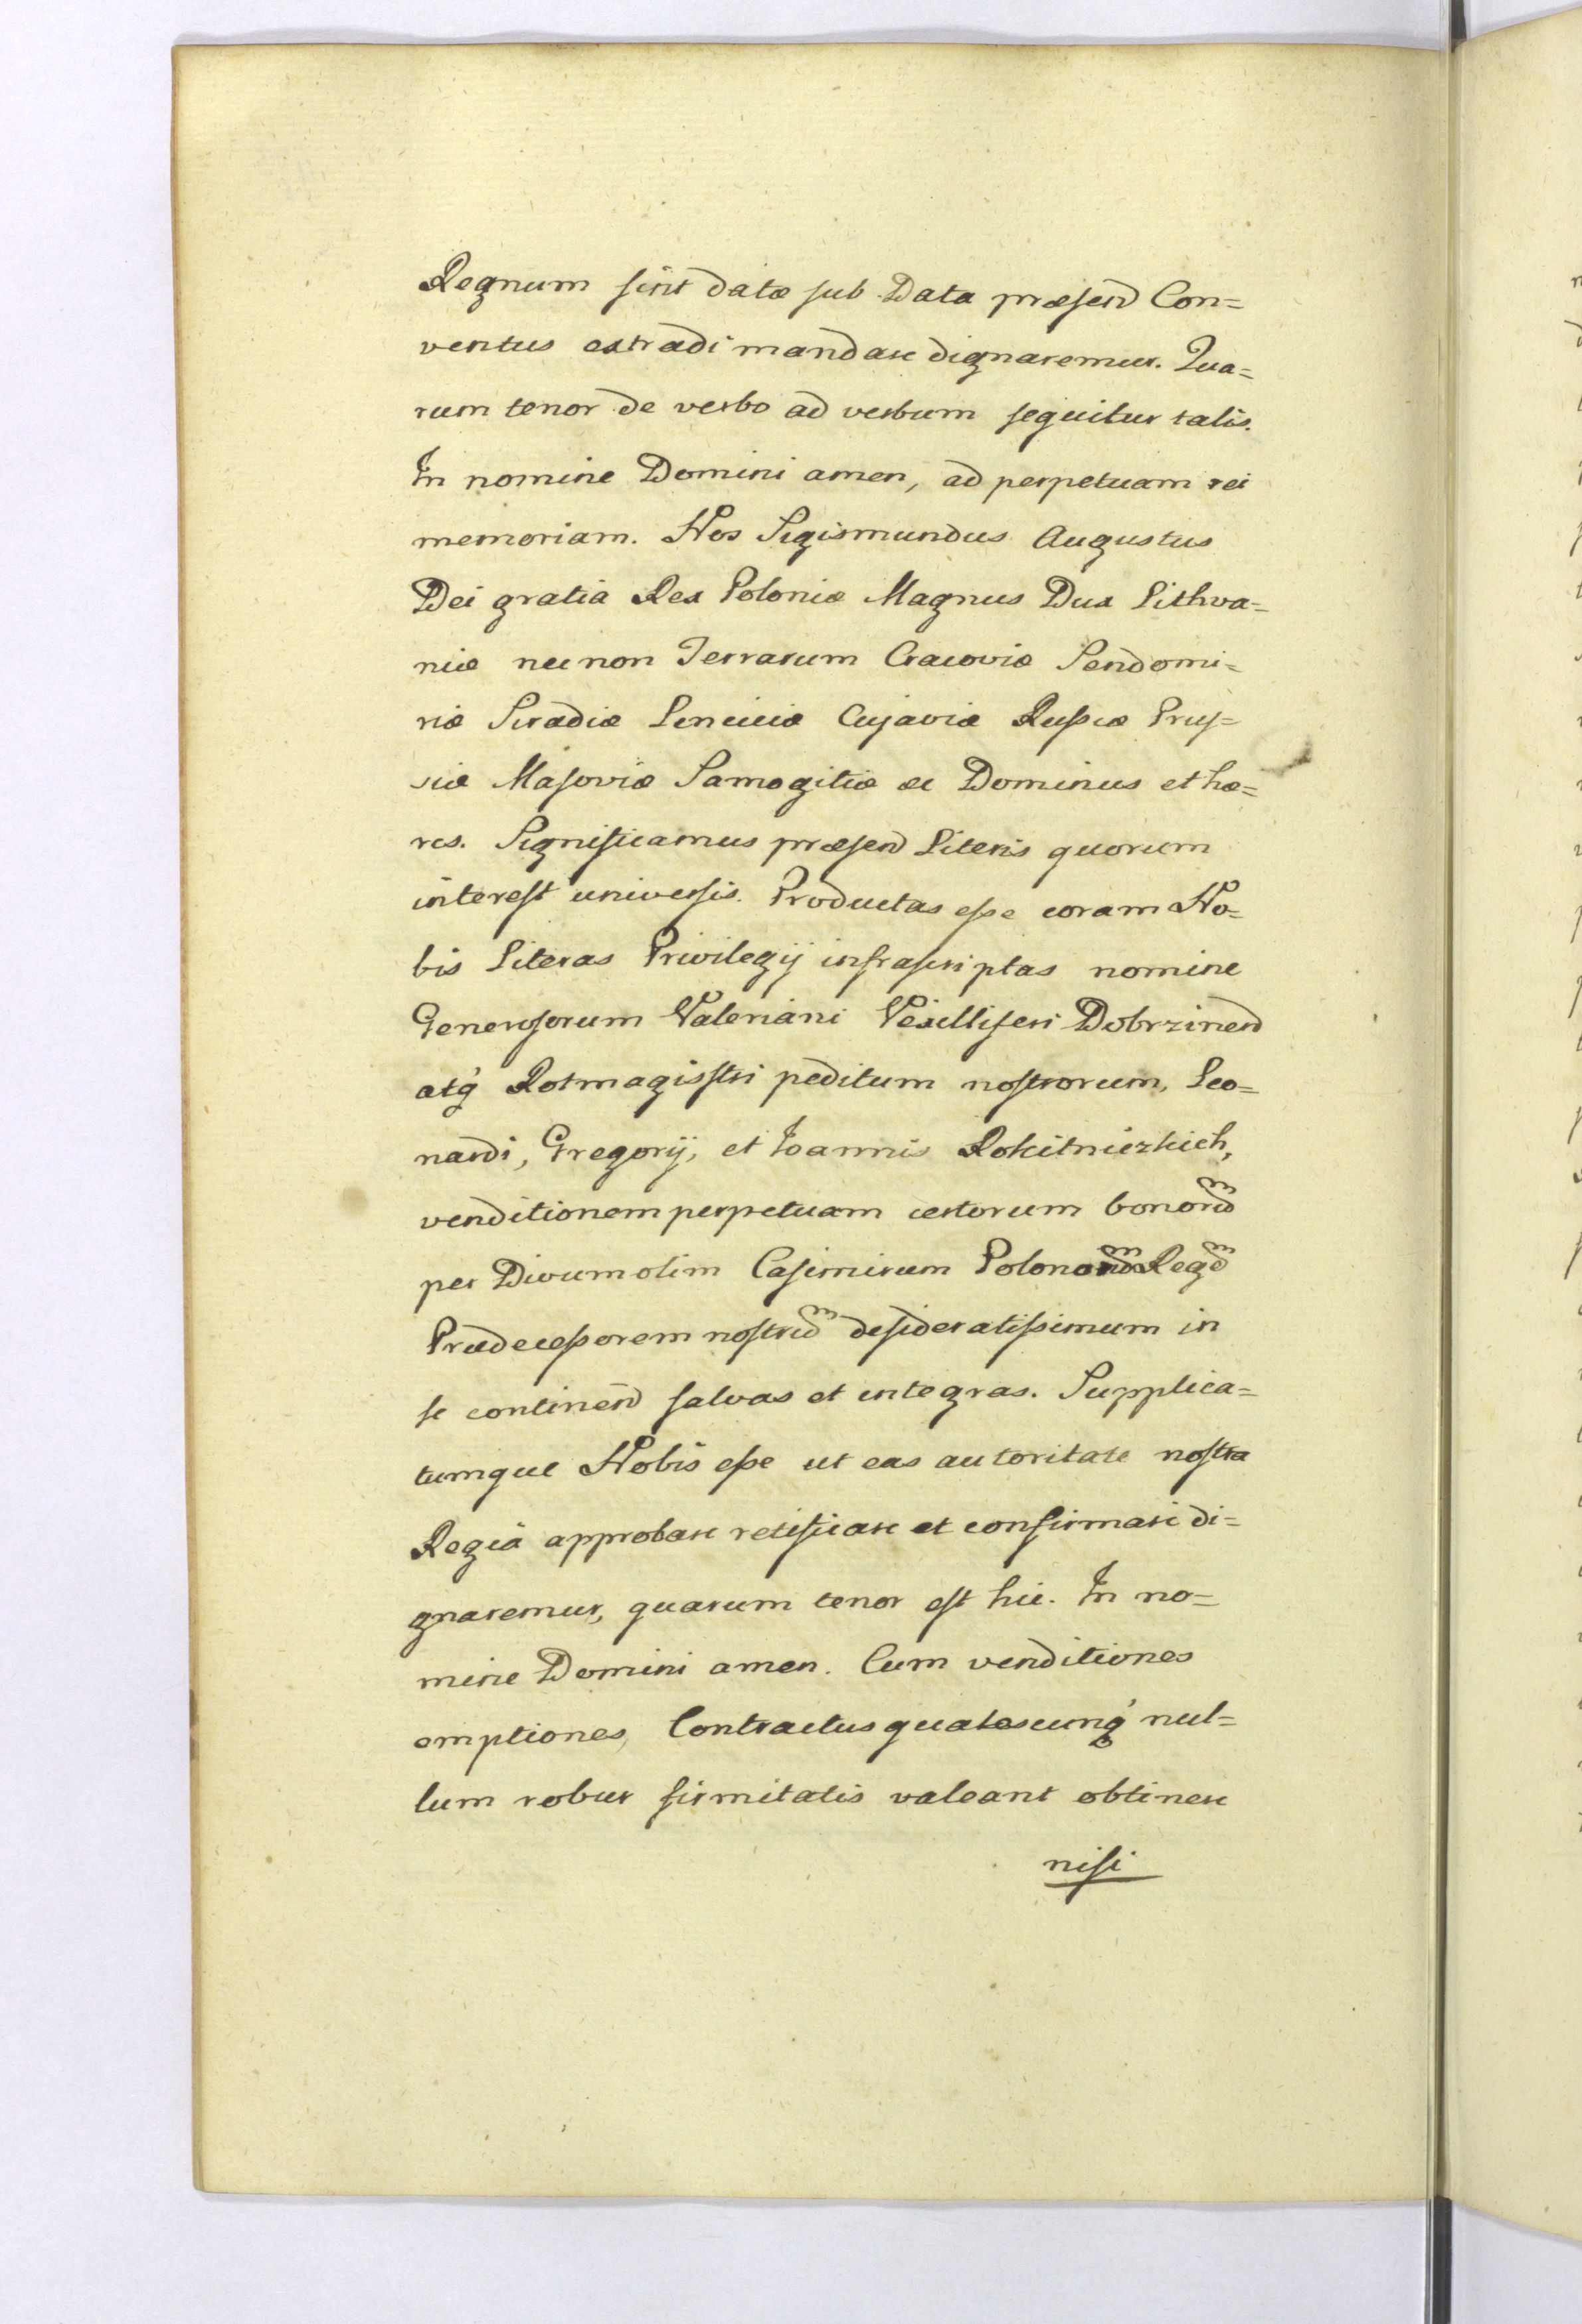 Regnum sint datæ sub Data præsend Con=
ventus extradi mandare dignaremur. Qua=
rum tenor de verbo ad verbum sequitur talis.
In nomine Domini amen, ad perpetuam rei
memoriam. Nos Sigismundus Augustus
Dei gratia Rex Poloniæ Magnus Dux Lithva=
niæ nec non Terrarum Cracoviæ Sendomi=
riæ Siradiæ Lenciciæ Cujaviæ Russiæ Prus=
siæ Masoviæ Samogitiæ ec Dominus et hæ=
res. Significamus præsend Literis quorum
interest universis. Productas esse coram No=
bis Literas Privilegij infrascriptas nomine
Generosorum Valeriani Vexilliferi Dobrzinend
atq́ Rotmagisstri peditum nostrorum, Leo=
nardi, Gregorij, et Joannis Rokitniczkich,
venditionem perpetuam certorum bonorum
per Divum olim Casimirum Polonorum Regem
Prædecessorem nostrum desideratissimum in
se continend salvas et integras. Supplica=
tumque Nobis esse ut eas autoritate nostra
Regia approbare retificare et confirmare di=
gnaremur, quarum tenor est hic. In no=
mine Domini amen. Cum venditiones
emptiones, Contractus qualescunq́ nul=
lum robur firmitatis valeant obtinere
nisi